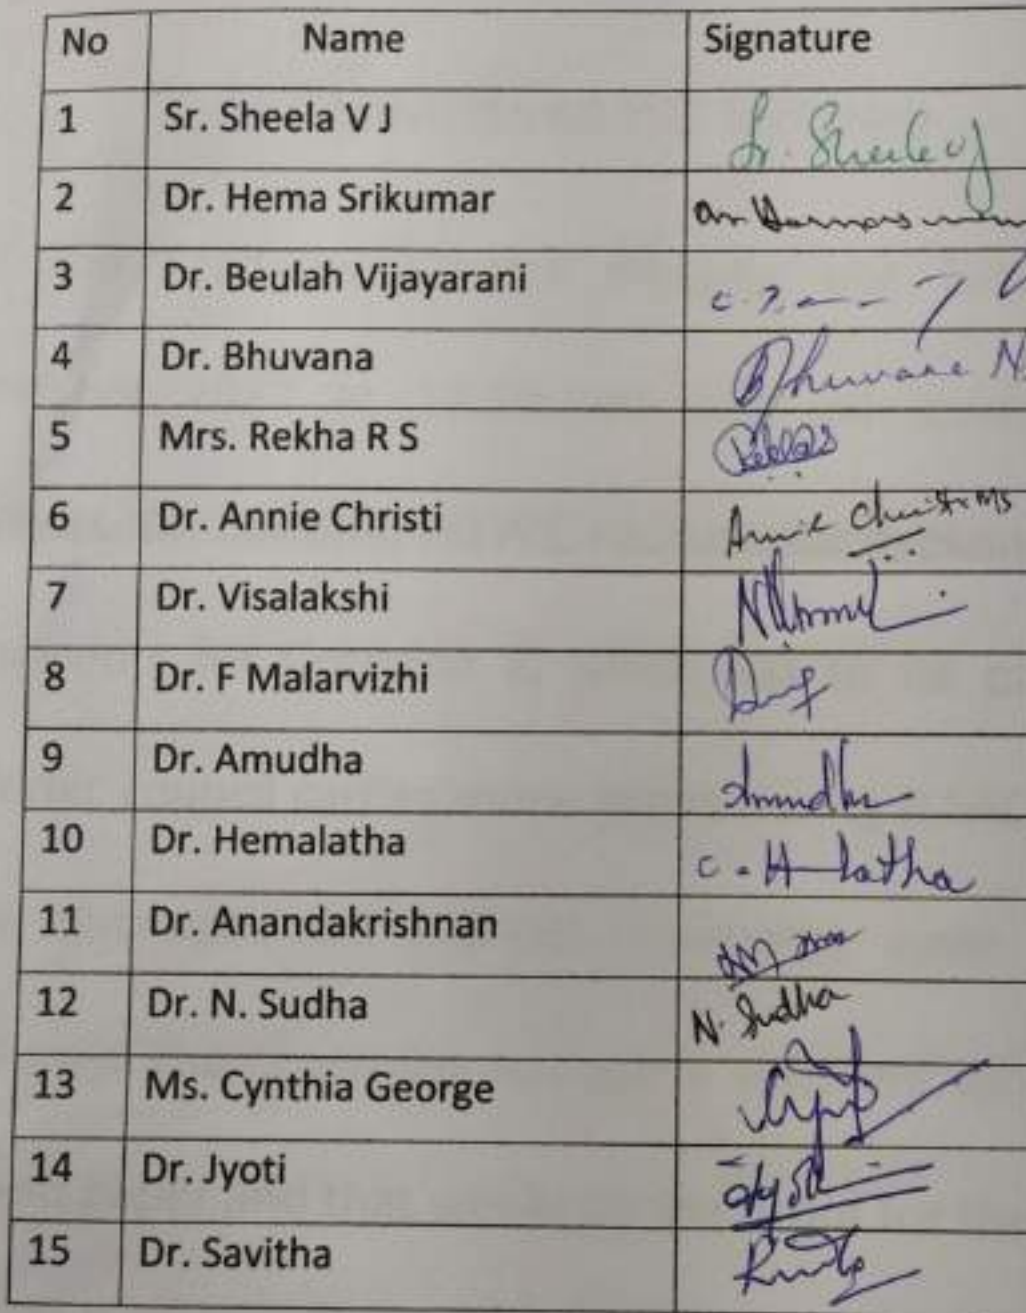 No Name Signature
1 Sr. Sheela V J Sr. Sheela VJ
2 Dr. Hema Srikumar
3 Dr. Beulah Vijayarani
4 Dr. Bhuvana Bhuvana N
5 Mrs. Rekha R S RekhaRS
6 Dr. Annie Christi Annie Christi MS
7 Dr. Visalakshi
8 Dr. F Malarvizhi
9 Dr. Amudha Amudha
10 Dr. Hemalatha C. H latha
11 Dr. Anandakrishnan
12 Dr. N. Sudha N. Sudha
13 Ms. Cynthia George
14 Dr. Jyoti
15 Dr. Savitha